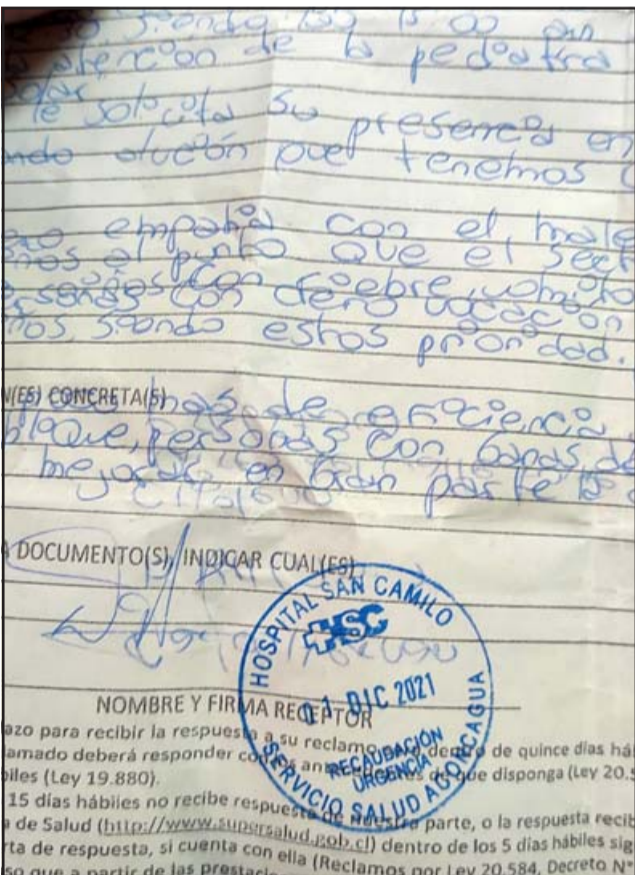 siendo las 15 00
atención de la pediatra
le solicita su presencia en
ando olución que tenemos
empatía con el male
el punto que el sect
con fiebre, vomito
sonas con cero vocación
siendo estos prioridad.
N(ES) CONCRETA(S)
mas de eficiencia
bloque, personas con ganas de
mejorar en gran parte la
DOCUMENTO(S), INDICAR CUAL(ES)
HOSPITAL SAN CAMILO
HSC
01 DIC 2021
RECAUDACIÓN
URGENCIA
SERVICIO SALUD ACONCAGUA
NOMBRE Y FIRMA RECEPTOR
azo para recibir la respuesta a su reclamo dentro de quince días há
amado deberá responder con los de que disponga (Ley 20.5
biles (Ley 19.880).
15 días hábiles no recibe respuesta de nuestra parte, o la respuesta recib
a de Salud (http://www.supersalud.gob.cl) dentro de los 5 días hábiles sig
rta de respuesta, si cuenta con ella (Reclamos por Ley 20.584, Decreto N°
so que a partir de las prestacio